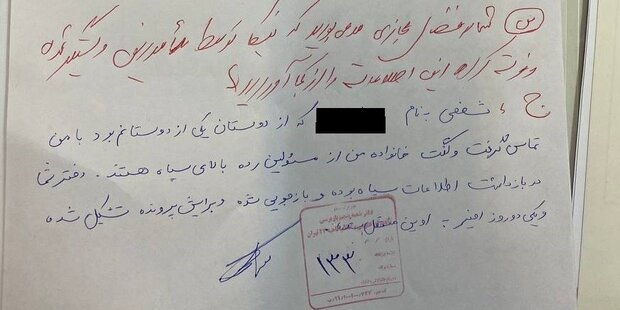 س) شما در فضای مجازی مدعی بودید که نیکا توسط مأمورین دستگیر شده
و فوت کرده این اطلاعات را از کجا آوردید؟
ج) شخصی به نام که از دوستان یکی از دوستانم بود با من
تماس گرفت و گفت خانواده من از مسئولین رده بالای سپاه هستند. دختر شما
در بازداشت اطلاعات سپاه بوده و بازجویی شده و برایش پرونده تشکیل شده
و یکی دو روز اخیر به اوین منتقل
۱۳۳